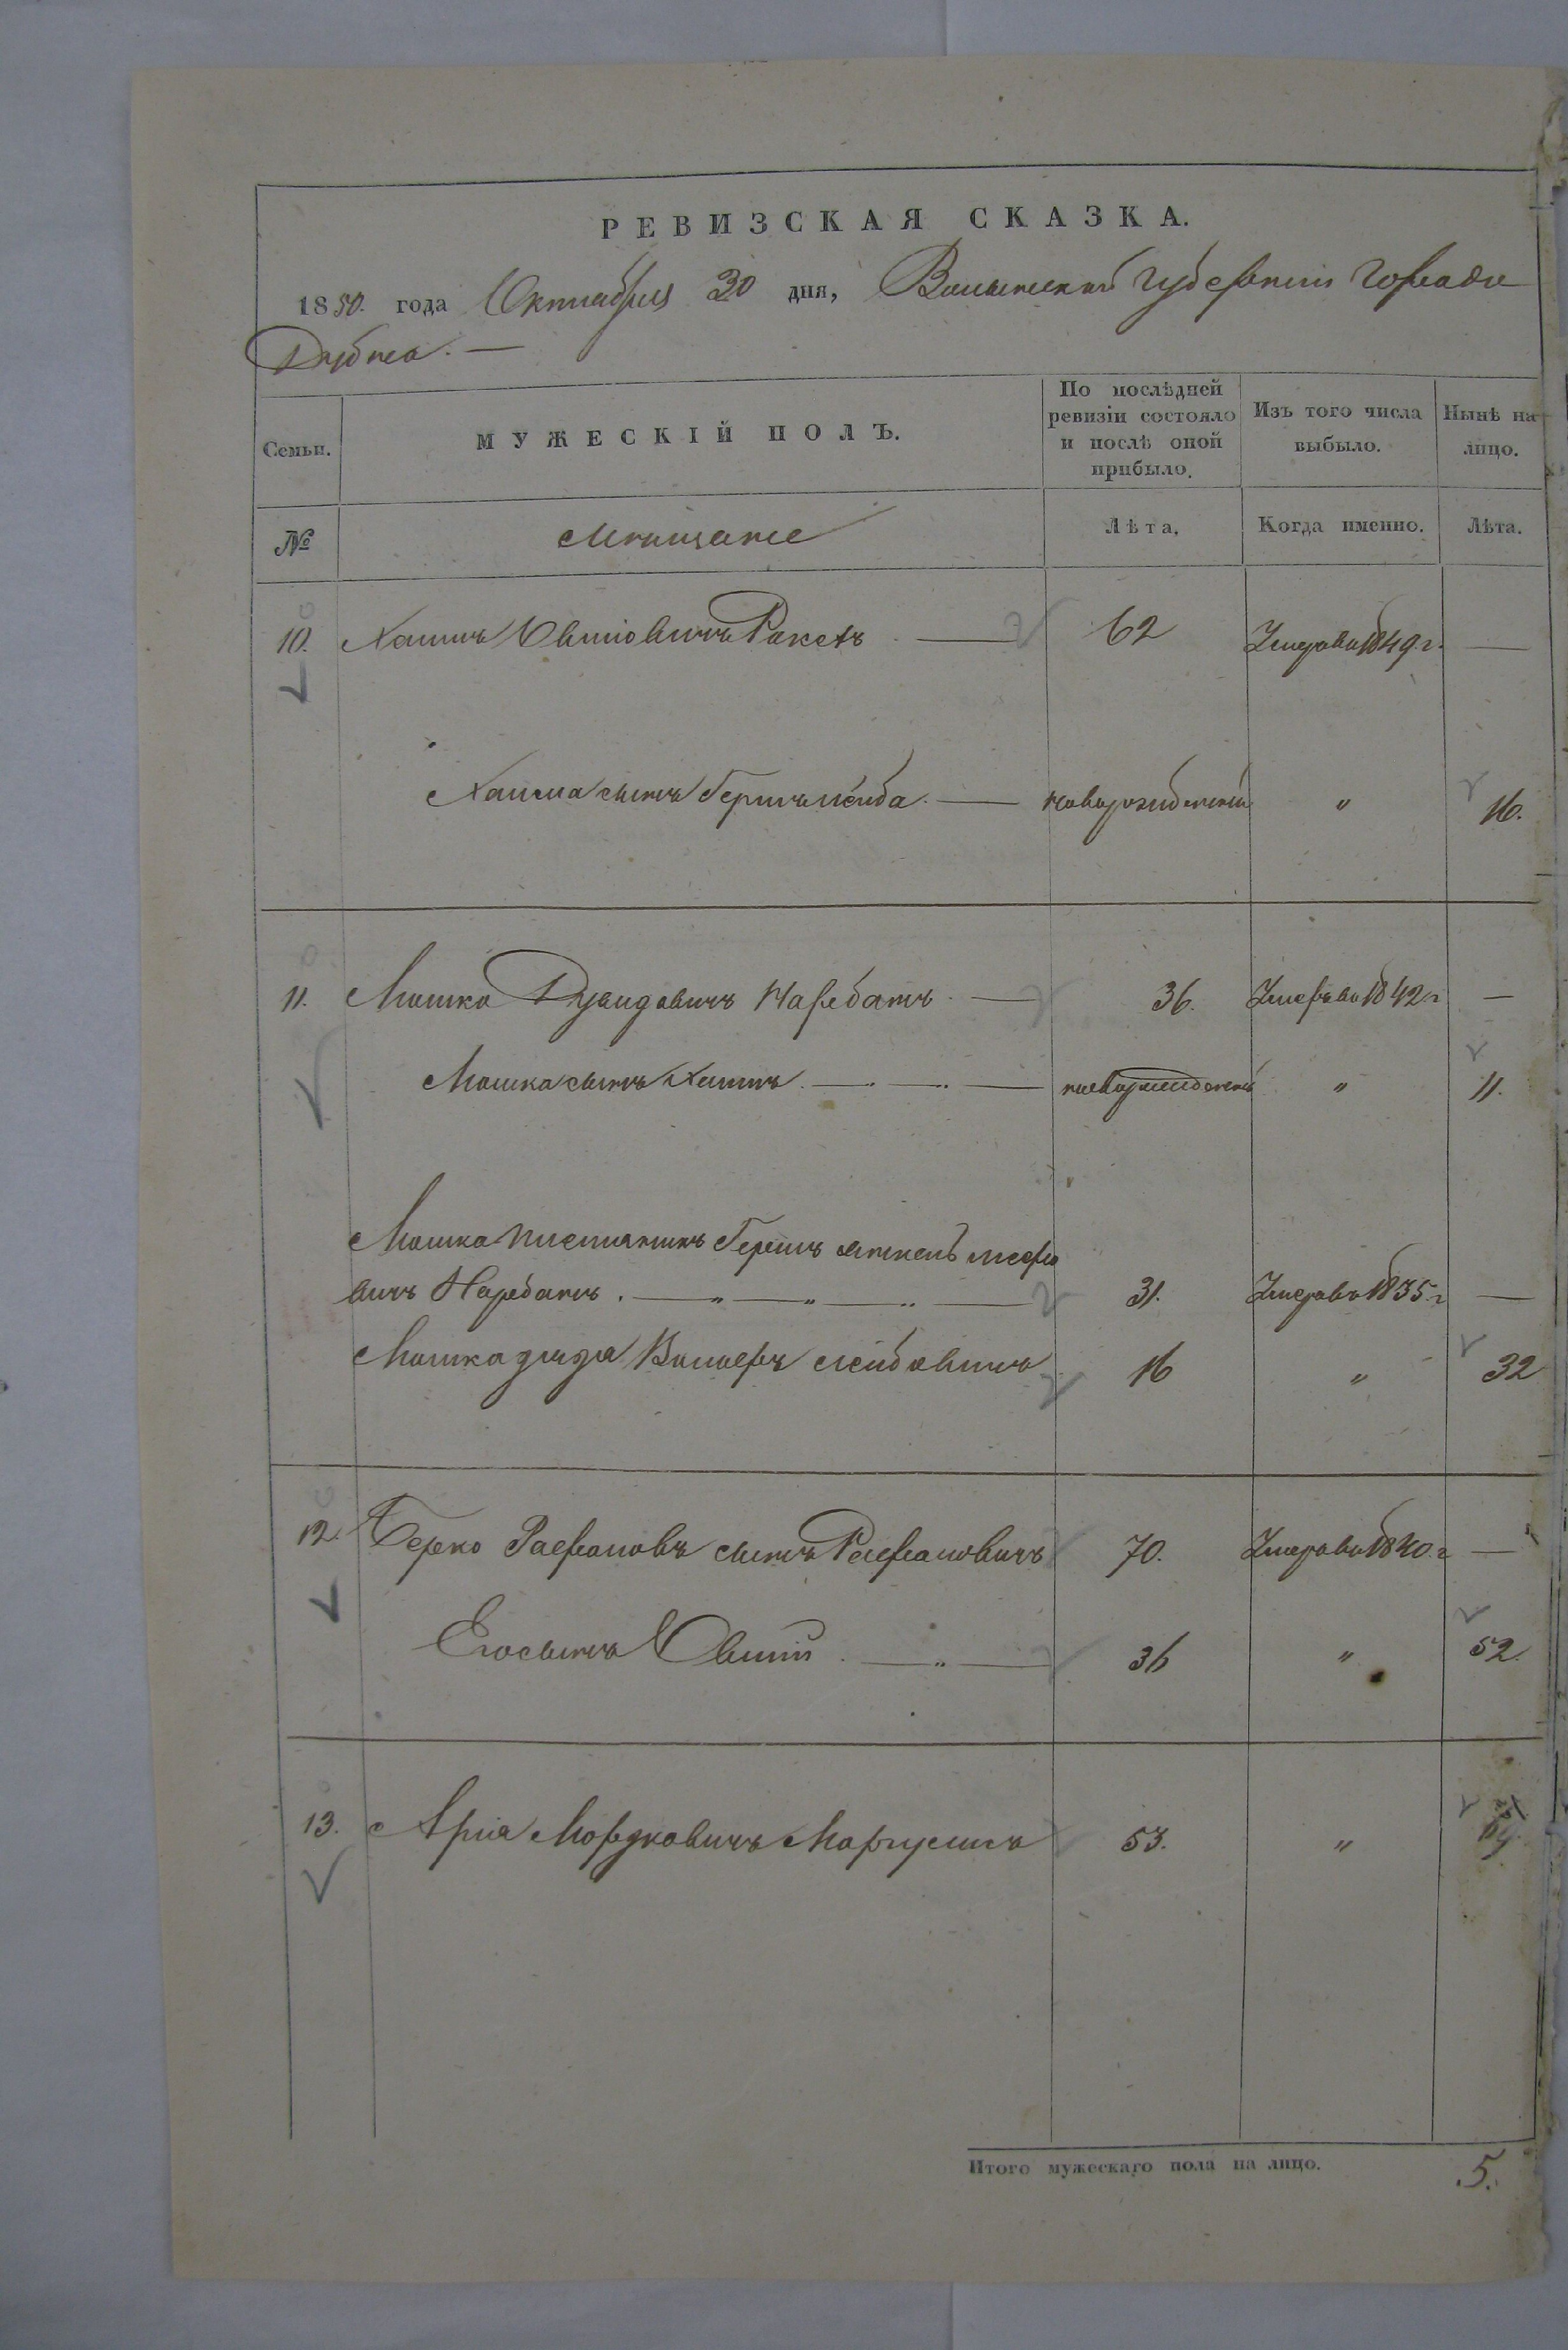 РЕВИЗСКАЯ СКАЗКА.
1850. года Октября 30 дня, Волынской губерніи Города
Дубна. —
Семьи.
МУЖЕСКІЙ ПОЛЪ.
По послѣдней ревизіи состояло и послѣ оной прибыло.
Изъ того числа выбыло.
Нынѣ на лицо.
№ Мѣщане Лѣта. Когда именно. Лѣта.
10. Хаимъ Овшіовичъ — 62 Умеръ въ 1849 г. —
Хаима сынъ Гершъ Лейба. — новорожденный " 16.
11. Мошко Дувидовичъ — 36. Умеръ въ 1842 г —
Мошка сынъ Хаимъ. — новорожденный " 11.
Мошка племянникъ Гершъ
вичъ — " — " — " — 31. Умеръ въ 1835 г —
Мошка дядя Лейбовичъ 16 " 32
12. Берко сынъ 70. Умеръ въ 1840. г —
Его сынъ Овшій. — " — 36 " 52.
13. Арія Мордковичъ Маргулисъ 53. " 69.
Итого мужескаго пола на лицо. 5.